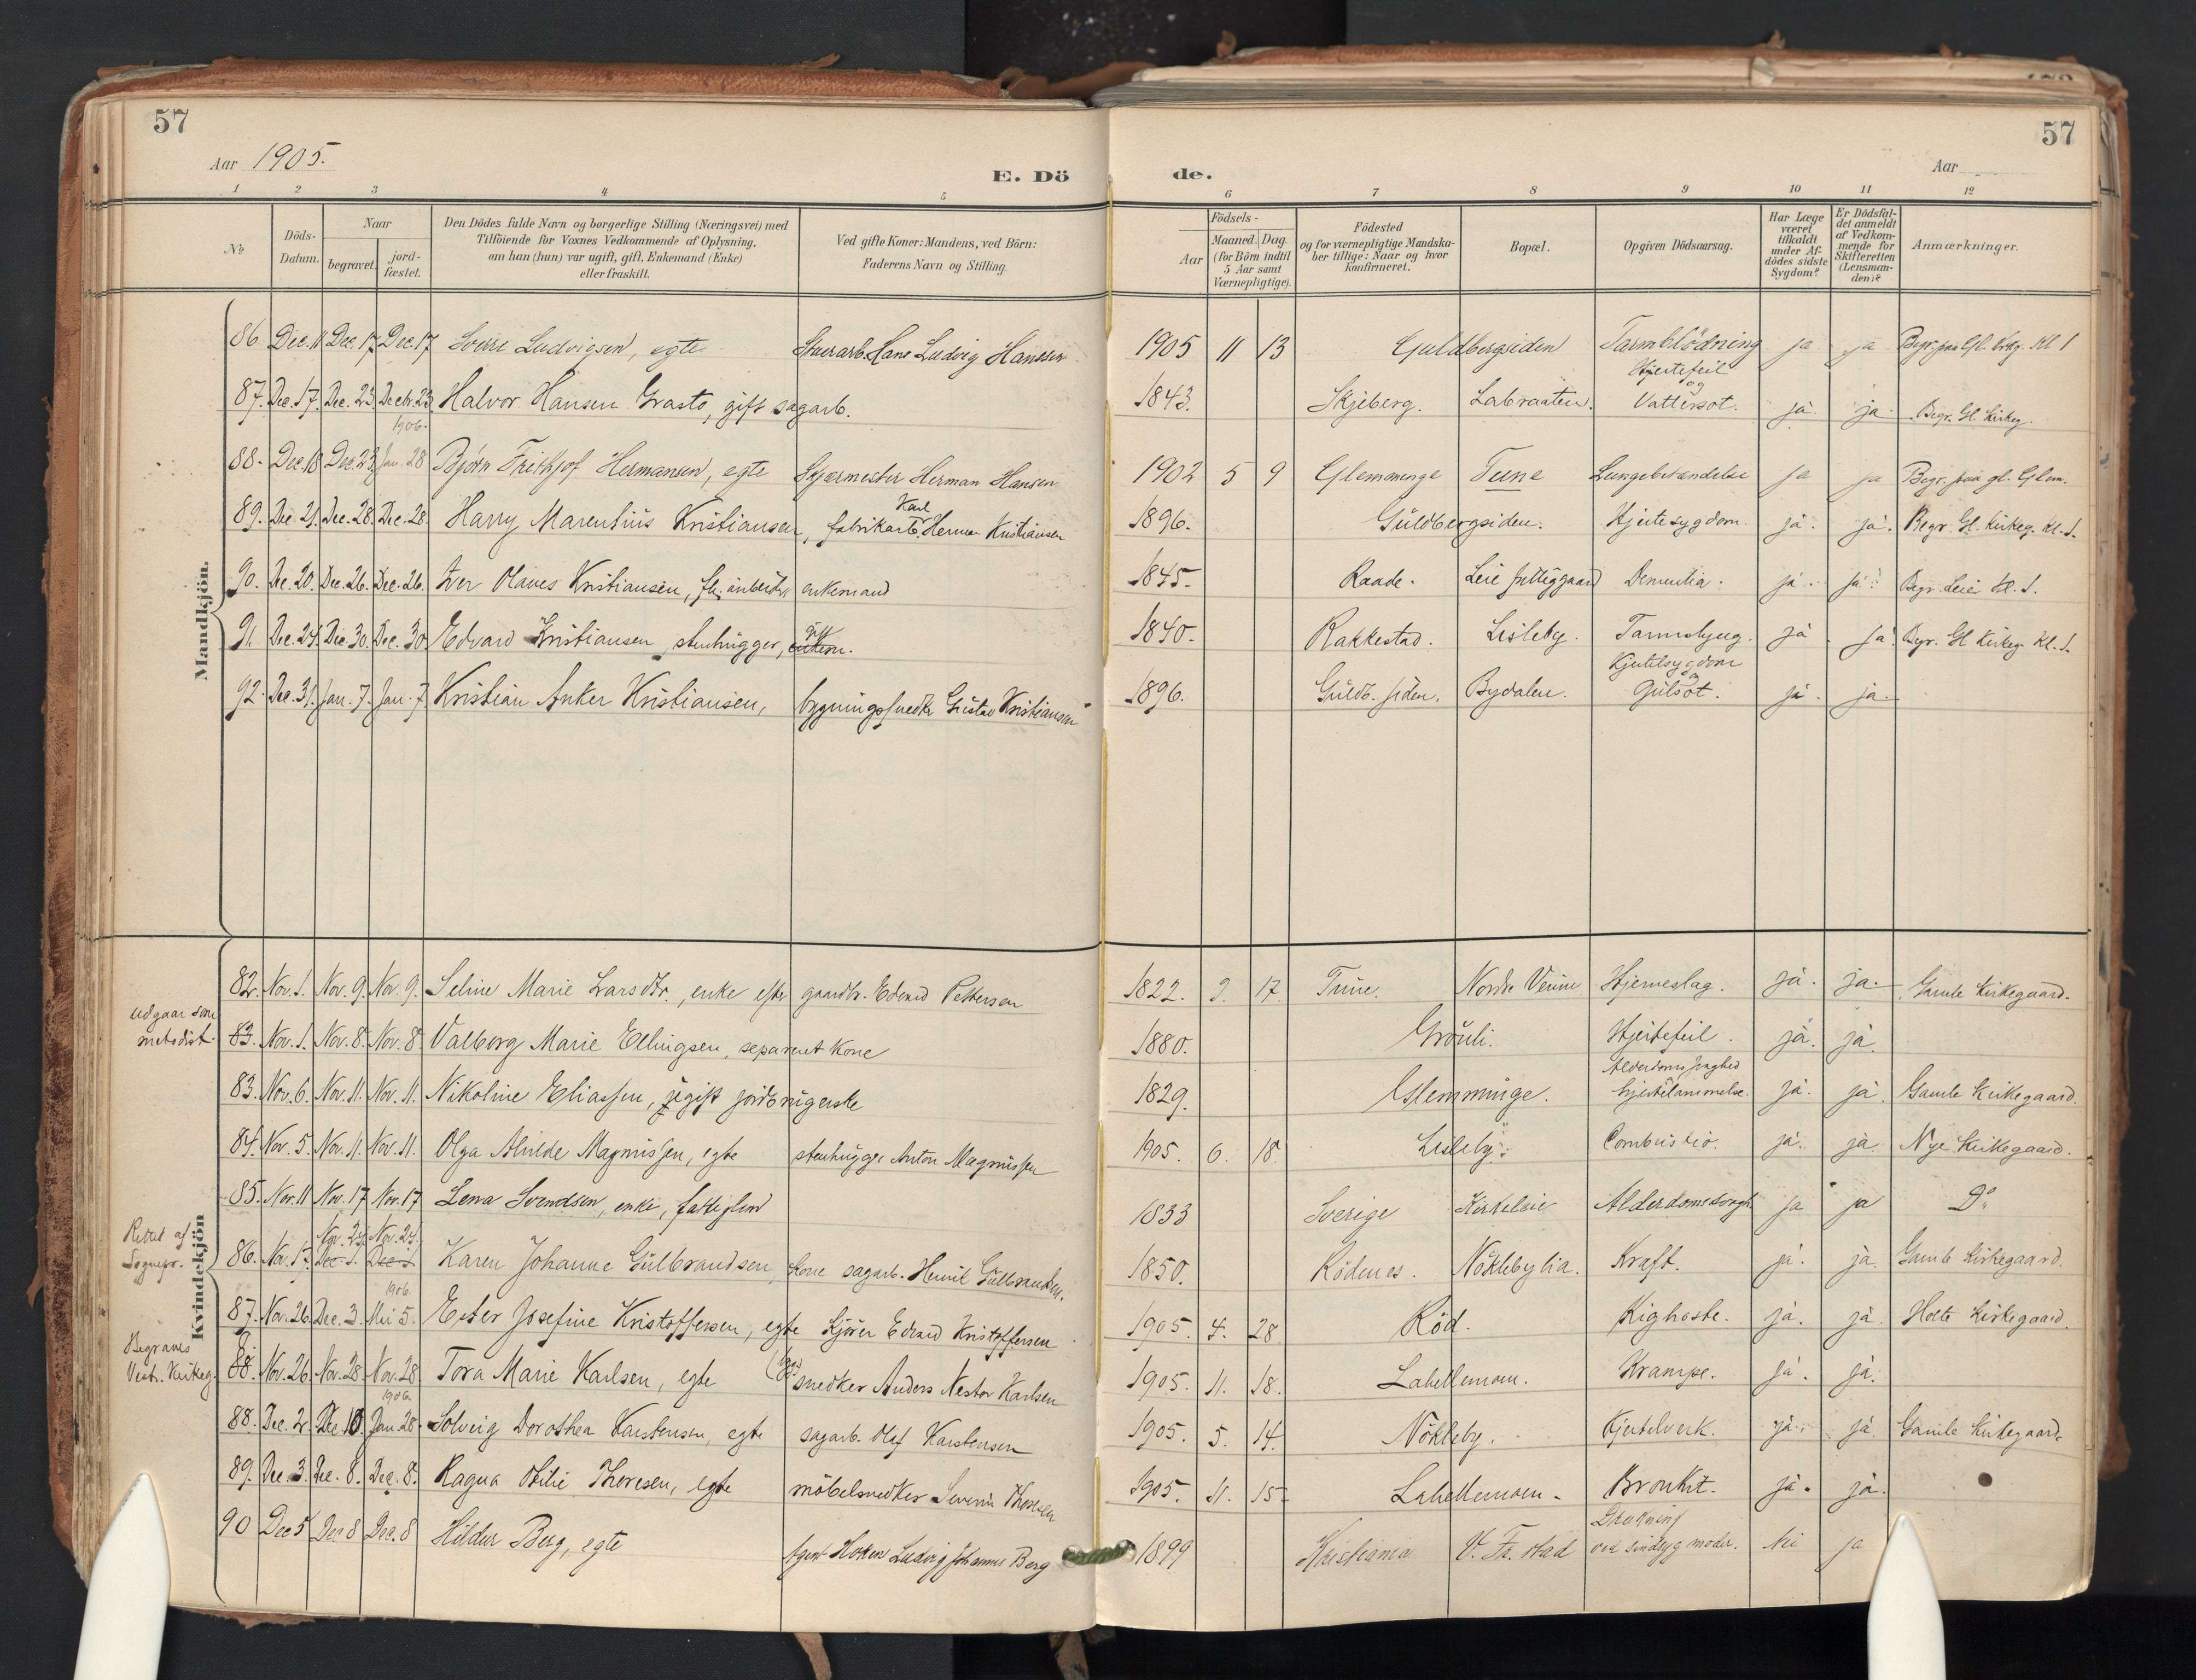 57
57
Aar 1905.
E. Dö
de.
Aar
1 2 3 4 5 6 7 8 9 10 11 12
No
Döds-Datum.
Naar
begravet.
jord-fæstet.
Den Dödes fulde Navn og borgerlige Stilling (Næringsvei) med
Tilföiende for Voxnes Vedkommende af Oplysning,
om han (hun) var ugift, gift, Enkemand (Enke)
eller fraskilt.
Ved gifte Koner: Mandens, ved Börn:
Faderens Navn og Stilling.
Födsels-
Aar
Maaned. Dag.
(for Börn indtil
5 Aar samt
Værnepligtige).
Födested
og for værnepligtige Mandska-
ber tillige: Naar og hvor
konfirmeret.
Bopæl.
Opgiven Dödsaarsag.
Har Læge
været
tilkaldt
under Af-
dödes sidste
Sygdom?
Er Dödsfal-
det anmeldt
af Vedkom-
mende for
Skifteretten
(Lensman-
den)?
Anmærkninger.
Mandkjön.
86 Dec. 11 Dec. 17 Dec. 17 Sverre Ludvigsen, egte Stuerarb. Hans Ludvig Hanssen 1905 11 13 Guldbergsiden Tarmblödning ja ja Begr. paa Gl. Krkg. Kl 1
87. Dec. 17. Dec. 23 Decbr. 23 Halvor Hansen Grasto, gift sagarb. 1843. Skjeberg. Labraaten. Hjertefeil og Vattersot. ja. ja. Begr. Gl. Kirkeg.
88. Dec. 18 Dec. 23 1906. Jan. 28 Bjørn Frithjof Hermansen, egte Skjærmester Herman Hansen 1902 5 9 Glemminge Tune Lungebetændelse ja ja Begr. paa gl. Glem.
89. Dec. 21. Dec. 28. Dec. 28. Harry Marentius Kristiansen, fabrikarb. Karl Herman Kristiansen 1896. Guldbergsiden. Hjertesygdom ja. ja. Begr. Gl. Kirkeg. Kl. 1.
90. Dec. 20. Dec. 26. Dec. 26. Iver Olaves Kristiansen, enkemand 1845. Raade. Leie fattiggaard Dementia. ja. ja. Begr. Leie Kl. 1.
91. Dec. 24. Dec. 30. Dec. 30. Edvard Kristiansen, stenhugger, enkem. gift 1840. Rakkestad. Lisleby. Tarmslyng. ja. ja. Begr. Gl Kirkeg. Kl. 1.
92. Dec. 31. Jan. 7. Jan. 7. Kristian Anker Kristiansen, bygningssnedker Gustav Kristiansen 1896. Guldb. siden. Bydalen. Kjertelsygdom og Gulsot. ja. ja.
Kvindekjön
82. Nov. 1. Nov. 9. Nov. 9. Seline Marie Larsdtr., enke efter gaardbr. Edvard Pettersen 1822. 2. 17. Tune. Nordre Veum Hjerneslag. ja. ja. Gamle Kirkegaard.
Udgaar som
metodist.
83. Nov. 1. Nov. 8. Nov. 8. Valborg Marie Ellingsen, separeret kone 1880. Gröuli. Hjertefeil. ja. ja.
83. Nov. 6. Nov. 11. Nov. 11. Nikoline Eliassen, ugift jordbrugerske 1829. Glemminge. Alderdomssvaghed hjertelammelse. ja. ja. Gamle Kirkegaard.
84. Nov. 5. Nov. 11. Nov. 11. Olga Alvilde Magnussen, egte stenhugger Anton Magnussen 1905. 6. 18. Lisleby. Combustio. ja. ja. Nye Kirkegaard.
85. Nov. 11 Nov. 17 Nov. 17 Lena Svendsen, enke, fattiglem 1833 Sverige Kirkeleie Alderdomssvagh. ja ja Do
Rettet af
Sognepr.
86. Nov. 17. Nov. 24. Dec. 1. Nov. 24. Dec. 1. Karen Johanne Gulbrandsen, kone sagarb. Henrik Gulbrandsen. 1850. Rödenes. Nöklebylia. Kræft. ja. ja. Gamle Kirkegaard.
87. Nov. 26. Dec. 3. 1906. Mai 5. Ester Josefine Kristoffersen, egte kjörer Edvard Kristoffersen 1905. 4. 28 Röd. Kighoste. ja. ja. Holte Kirkegaard.
Begraves
Vestr. Kirkeg.
88. Nov. 26. Nov. 28 Nov. 28 Tora Marie Karlsen, egte snedker Anders Nestor Karlsen 1905. 11. 18. Lahellemoen. Krampe. ja. ja.
88. Dec. 2. Dec. 10. 1906. Jan. 28. Solveig Dorothea Karstensen, egte sagarb. Olaf Karstensen 1905. 5. 14. Nökleby. Kjertelverk. ja. ja. Gamle Kirkegaard.
89. Dec. 3. Dec. 8. Dec. 8. Ragna Otilie Thoresen, egte möbelsnedker Severin Thoresen 1905. 11. 15. Lahellemoen. Bronkit. ja. ja.
90 Dec 5 Dec 8 Dec. 8 Hildur Berg, egte Agent Ludvig Johannes Berg 1899 Kristiania V. Fr. stad Drukning ved sindsyg moder. Nei ja